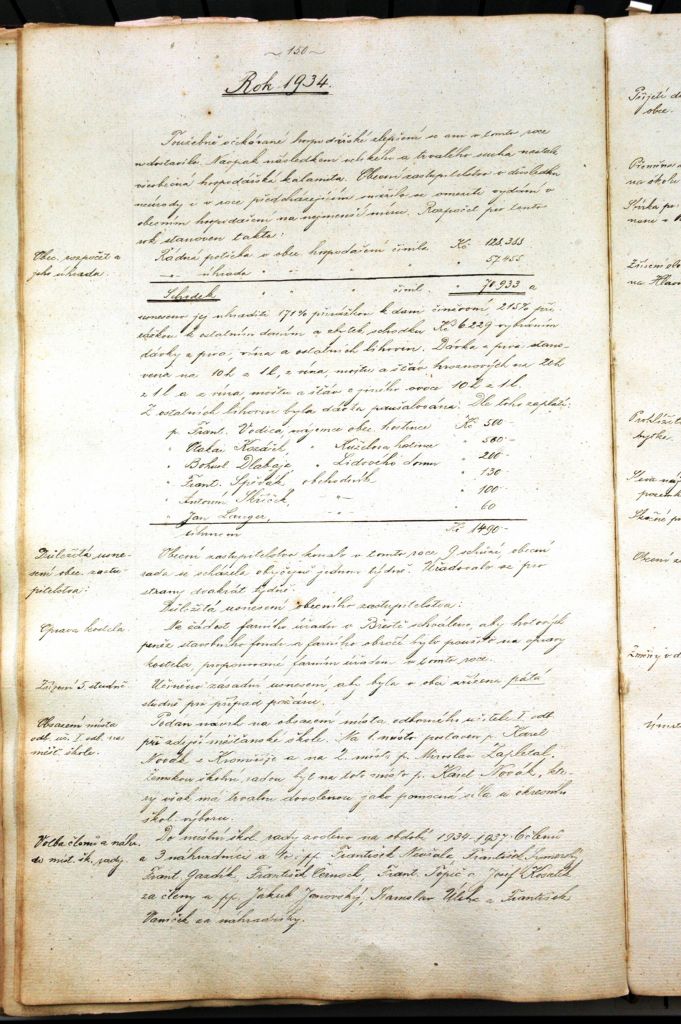 ~ 150 ~
Rok 1934.
Toužebně očekávané hospodářské zlepšení se ani v tomto roce
nedostavilo. Naopak následkem velikého a trvalého sucha nastala
všeobecná hospodářská kalamita. Obecní zastupitelstvo v důsledku
neúrody i v roce předcházejícím snažilo se omeziti vydání v
obecním hospodaření na nejmenší míru. Rozpočet pro tento
rok stanoven takto:
Obec. rozpočet a
jeho úhrada.
Řádná potřeba v obec. hospodaření činila Kč 128.388
" úhrada " " " " 57.455
Schodek " " činil " 70.933 a
usneseno jej uhraditi 171% přirážkou k dani činžovní, 215% při-
rážkou k ostatním daním a zbytek schodku Kč 6.229 vybíráním
dávky z piva, vína a ostatních lihovin. Dávka z piva stano-
vena na 10 h z 1 l, z vína, moštu a šťáv hroznových na 20 h
z 1 l a z vína, moštu a šťáv z jiného ovoce 10 h z 1 l.
Z ostatních lihovin byla dávka paušalována. Dle toho zaplatí:
p. Frant. Vodica, nájemce obec. hostince Kč 500-
" Otakar Kozáček, " Kužílkova hostince " 500-
" Bohusl. Dlabaja " Lidového domu " 200-
" Frant. Spěvák obchodník " 130
" Antonín Skříček, " " 100-
" Jan Langer, " " 60
úhrnem Kč 1490-
Důležitá usne-
sení obec. zastu-
pitelstva:
Obecní zastupitelstvo konalo v tomto roce 9 schůzí, obecní
rada se scházela obyčejně jednou týdně. Úřadovalo se pro
strany dvakrát týdně.
Důležitá usnesení obecního zastupitelstva:
Oprava kostela.
Na žádost farního úřadu v Břestě schváleno, aby hotových
peněz stavebního fondu a farního obročí bylo použito na opravy
kostela, proponované farním úřadem v tomto roce.
Zřízení 5. studně
Učiněno zásadní usnesení, aby byla v obci zřízena pátá
studně pro případ požáru.
Obsazení místa
odb. uč. I. odb. na
měšť. škole.
Podán návrh na obsazení místa odborného učitele I. odb.
při zdejší měšťanské škole. Na 1. místo postaven p. Karel
Novák z Kroměříže a na 2. místo p. Miroslav Zapletal.
Zemskou školní radou byl na toto místo p. Karel Novák, kte-
rý však má trvalou dovolenou jako pomocná síla u okresního
škol. výboru.
Volba členů a náhr.
do míst. šk. rady.
Do místní škol. rady zvoleno na období 1934-1937 6 členů
a 3 náhradníci a to: pp. František Navrátil, František
Frant. Gazdík, František Černoch, Frant. Töpič a Josef
za členy a pp. Jakub Janovský, Stanislav Uhlíř a František
Vaníček za náhradníky.